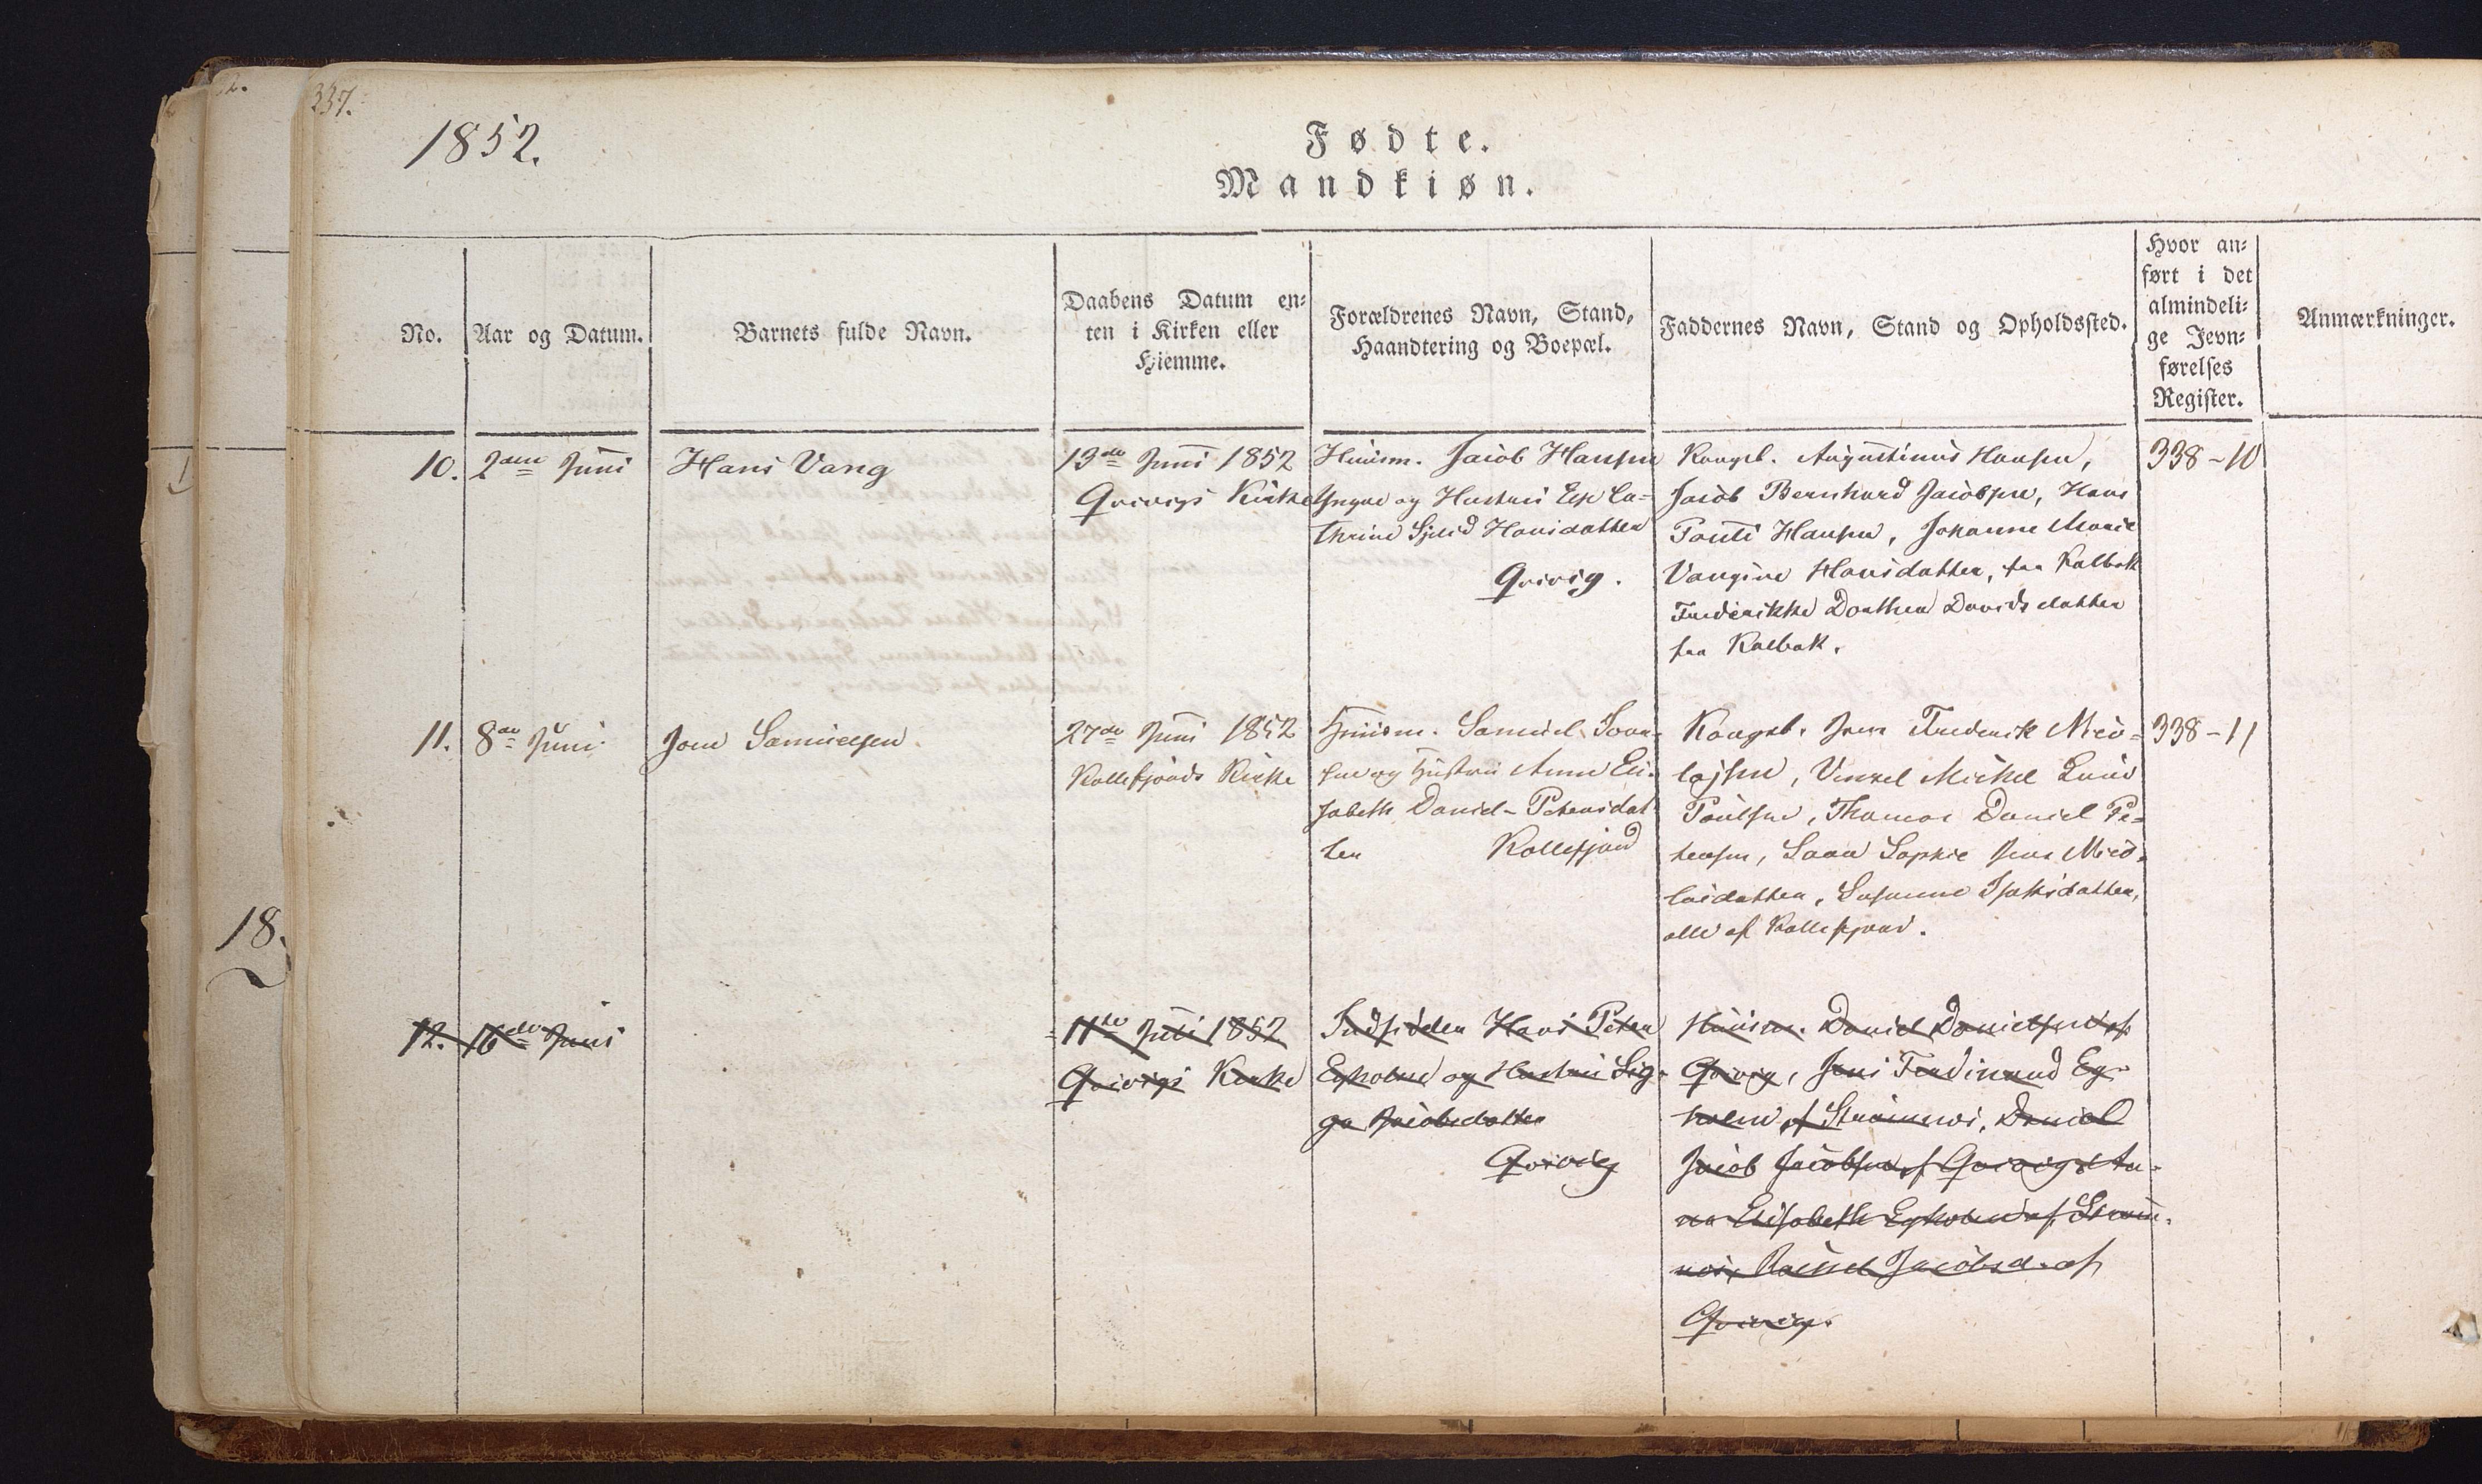 337.
1852.
Fødte.
Mandkiøn.
No.
Aar og Datum.
Barnets fulde Navn.
Daabens Datum en-
ten i Kirken eller
Hjemme.
Forældrenes Navn, Stand,
Haandtering og Boepæl.
Faddernes Navn, Stand og Opholdssted.
Hvor an-
ført i det
almindeli-
ge Jevn-
førelses
Register.
Anmærkninger.
10.
2den Juni
Hans Vang
13de Juni 1852
Qvivigs Kirke
Huusm. Jacob Hansen
og Hustru Else Ca-
thrine Hansdatter
Qvivig.
Kongsb. Augustinus Hansen,
Jacob Bernhard Jacobsen, Hans
Pouli Hansen, Johanne Marie
Vangine Hansdatter, fra Kalbak
Frederikke Dorthea Davidsdatter
fra Kalbak.
338-10
11.
8de Juni
Joen Samuelsen
27de Juni 1852
Kollefjords Kirke
Huusm. Samuel Joen-
sen og Hustru Anne Eli-
sabeth Daniel-Petersdat
ter Kollefjord
Kongsb. Jens Frederik Nico-
lajsen, Michel
Poulsen, Thomas Daniel Pe-
tersen, Sanna Sophie Jens Nico-
laidatter, Susanne Isaksdatter,
alle af Kollefjord.
338-11
12.
16de Juni
11te Juli 1852
Qvivigs Kirke
Indsidder Hans Peter
Egholm og Hustru Sig-
ga Jacobsdatter
Qvivig
Huusm. Daniel Danielsen af
Qvivig, Jens Ferdinand Eg-
holm af Strømnæs, Daniel
Jacob Jacobsen af Qvivig, An-
na Elisabeth Egholm af Strøm-
næs, Rachel Jacobsd. af
Qvivig.
18.